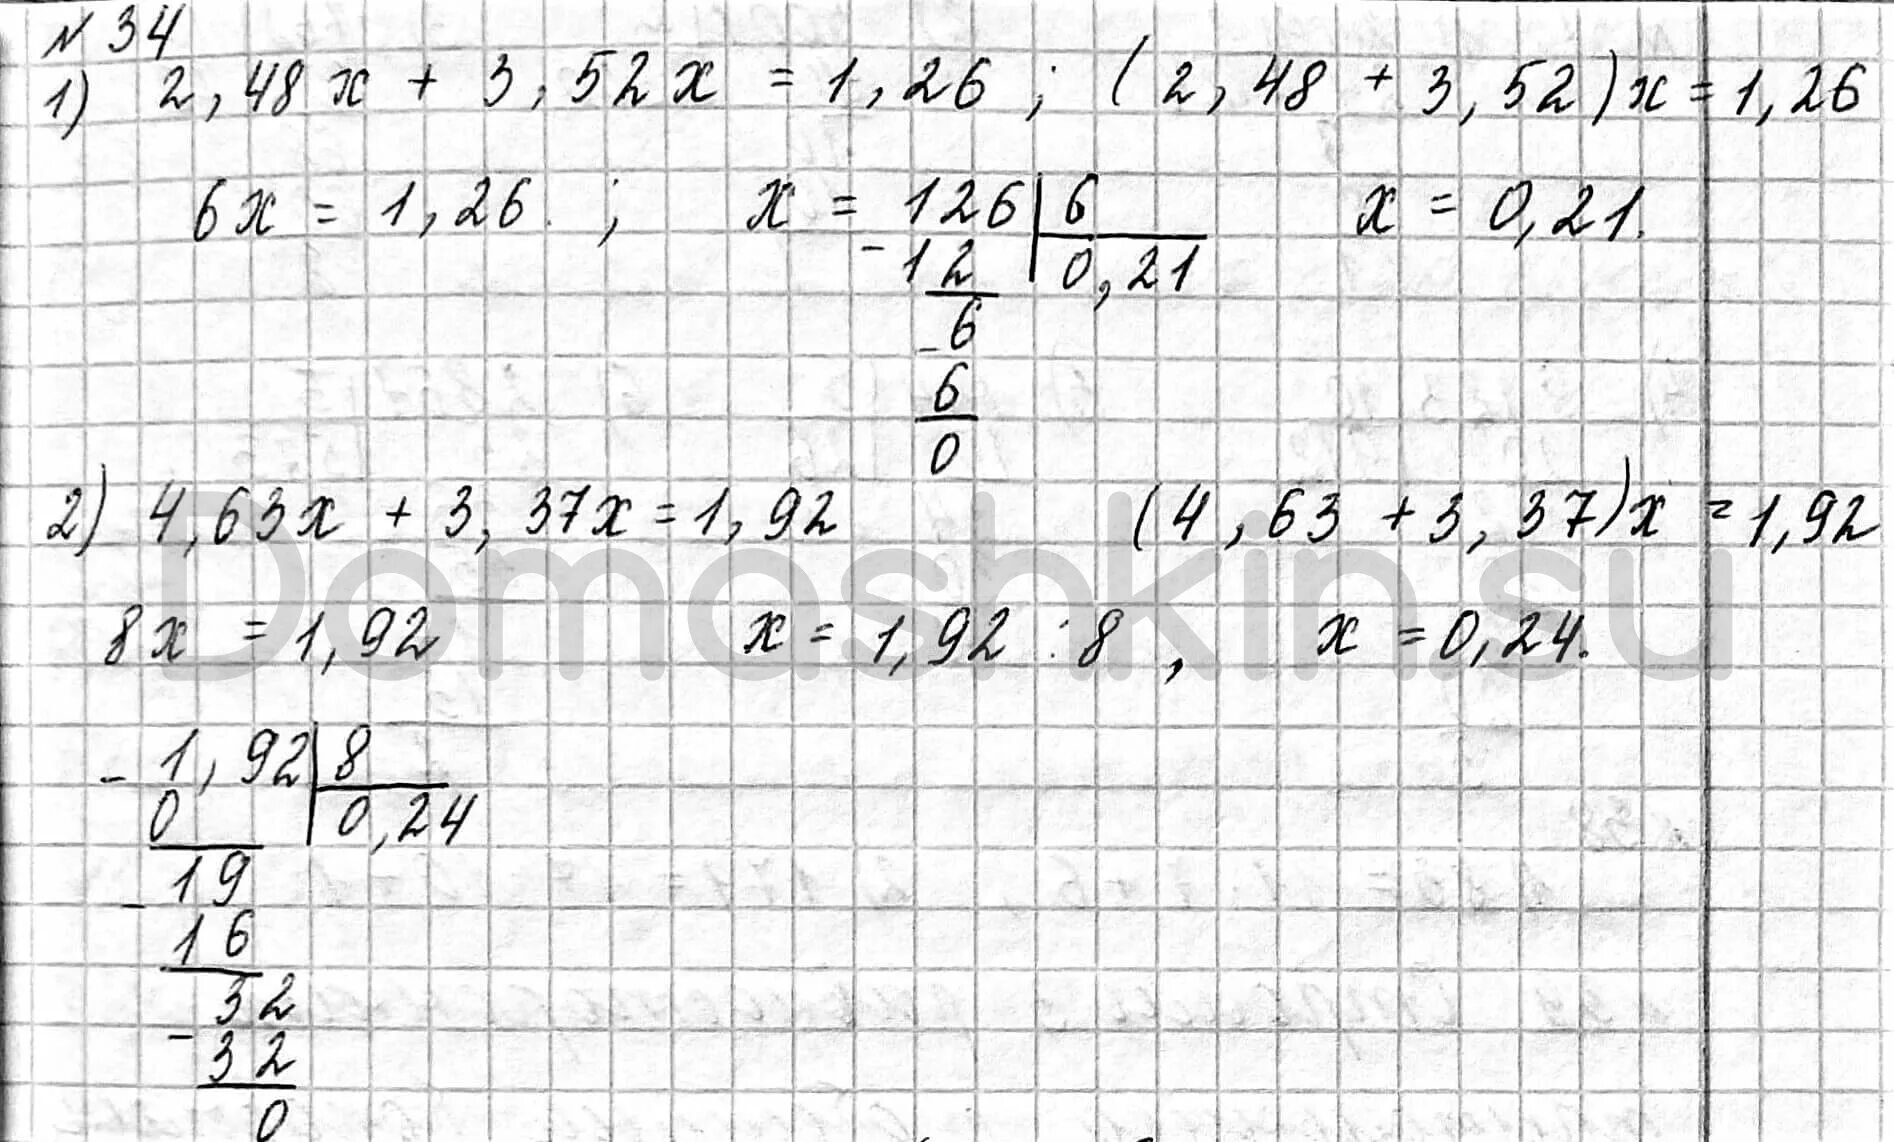 № 34
1) 2,48x + 3,52x = 1,26 ; (2,48 + 3,52)x = 1,26
6x = 1,26 ; x = 126 | 6 x = 0,21.
- 12 0,21
- 6
6
0
2) 4,63x + 3,37x = 1,92 (4,63 + 3,37)x = 1,92
Domashkin.su
8x = 1,92 x = 1,92 : 8 , x = 0,24.
- 1,92 | 8
0 0,24
- 19
16
- 32
32
0